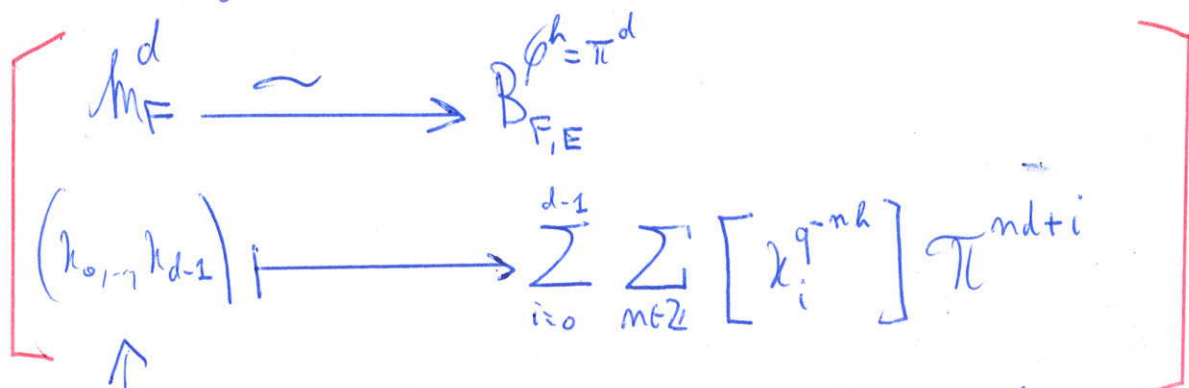 𝔪_F^d ⥲ B_{F,E}^{φ^h = π^d}
(x_0, …, x_{d-1}) ↦ ∑_{i=0}^{d-1} ∑_{n∈ℤ} [x_i^{q^{-nh}}] π^{nd+i}
↑